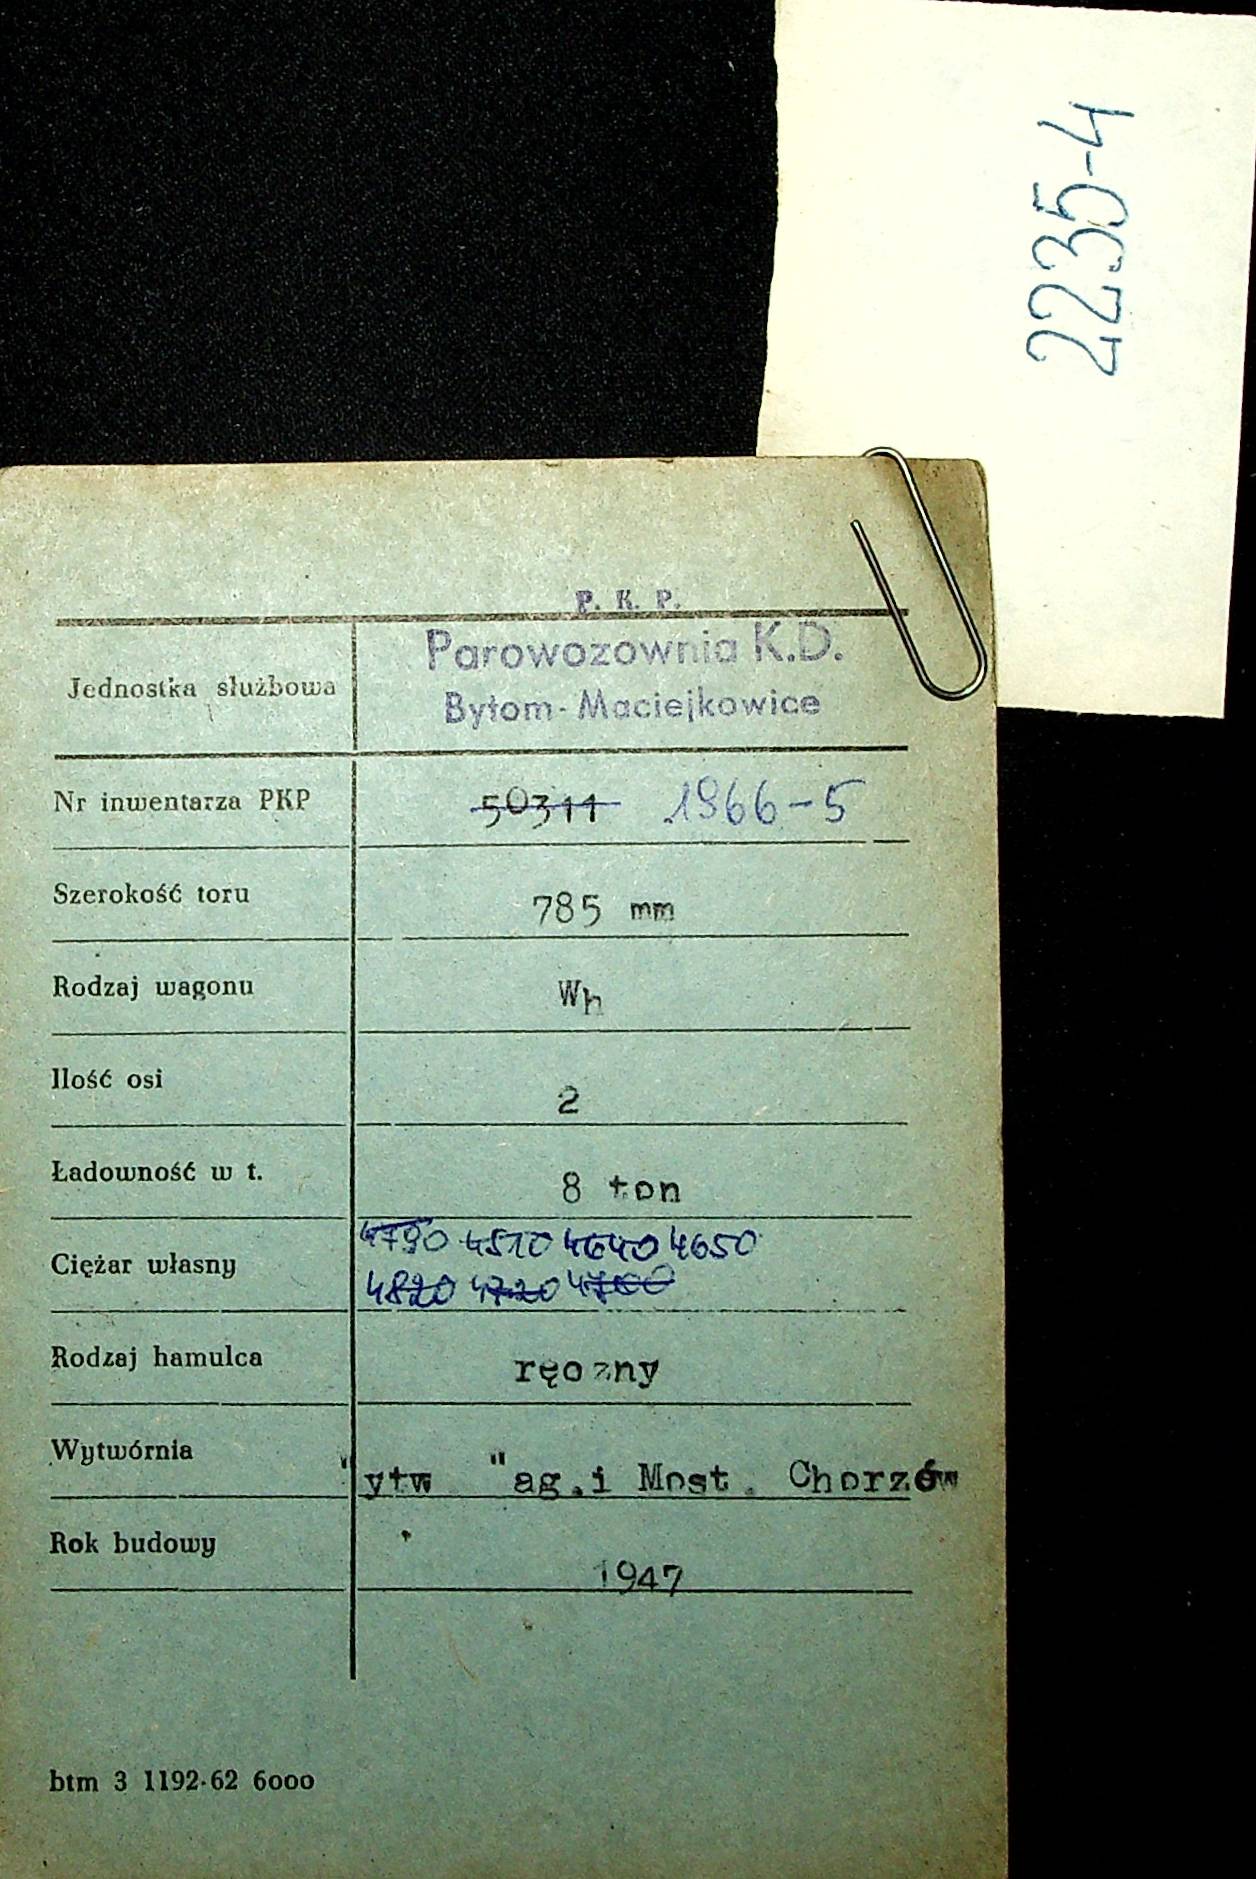 2235-4
P. K. P.
Parowozownia K.D.
Bytom-Maciejkowice
Jednostka służbowa
Nr inwentarza PKP 50311 1966-5
Szerokość toru 785 mm
Rodzaj wagonu Wh
Ilość osi 2
Ładowność w t. 8 ton
Ciężar własny 4790 4510 4640 4650
4820 4720 4700
Rodzaj hamulca ręczny
Wytwórnia "ytw "ag.i Most. Chorzów
Rok budowy 1947
btm 3 1192-62 6000